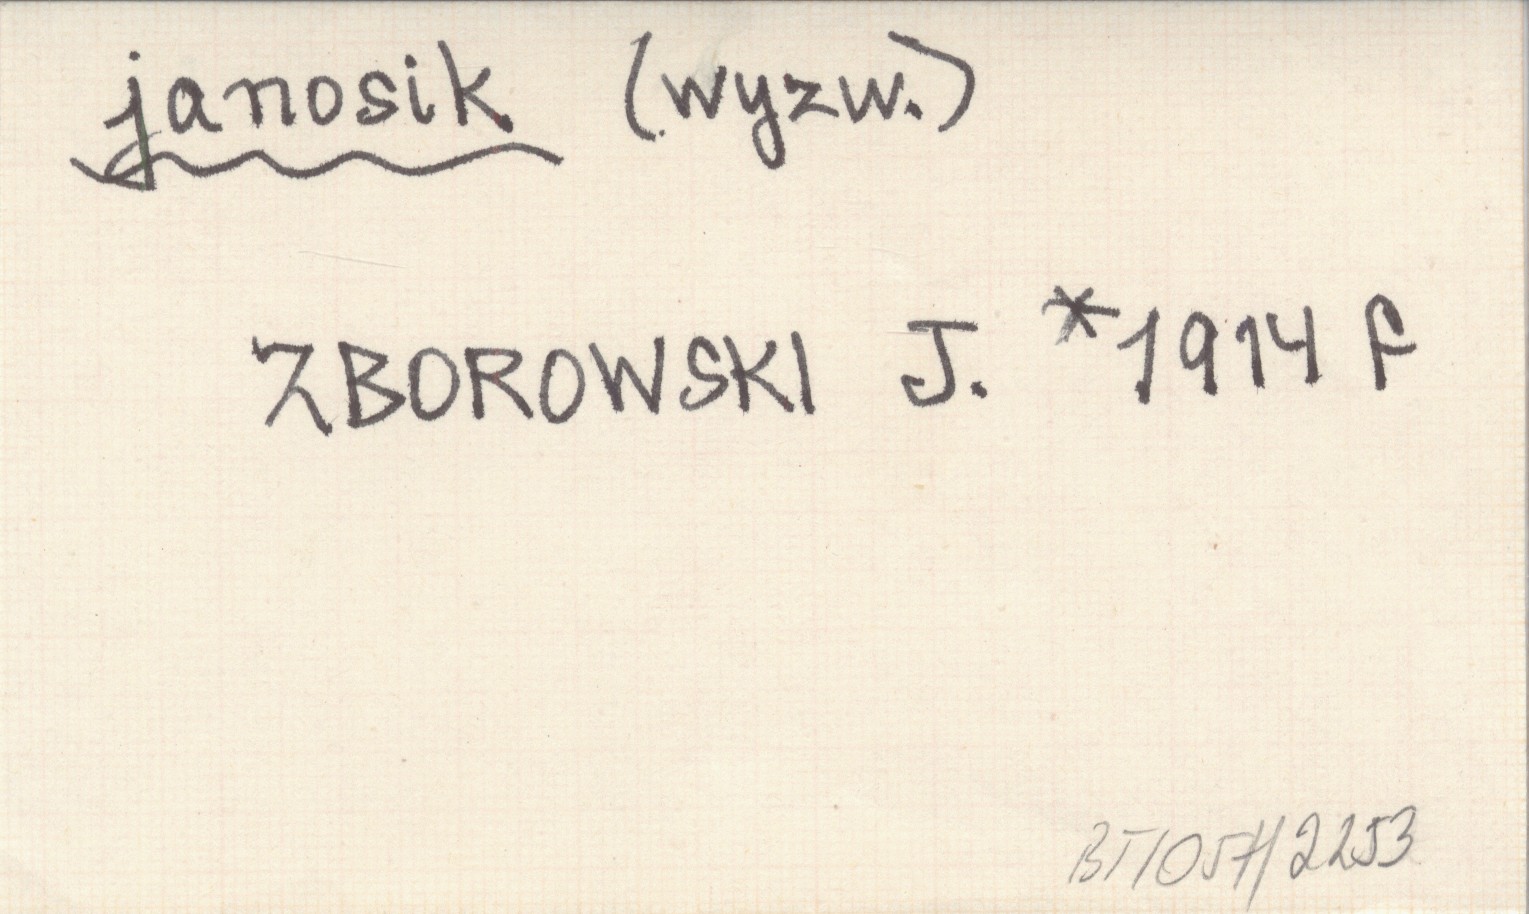 janosik (wyzw.)
ZBOROWSKI J. *1914 f
BT/057/2253